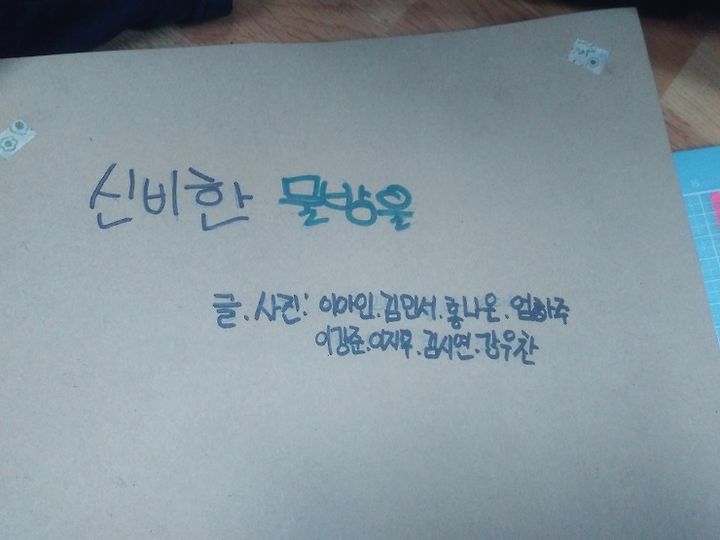 신비한 물방울
글.사진: 이아인.김민서.홍나은.엄하주
이강준.이지무.김시연.강우찬